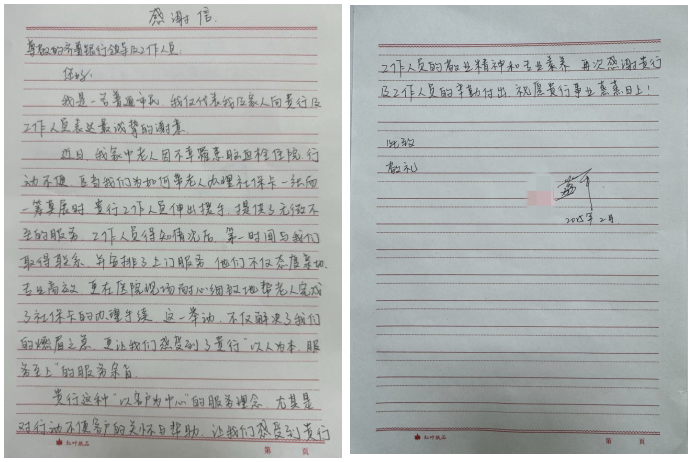 感谢信
尊敬的齐鲁银行领导及工作人员:
您好!
我是一名普通市民,我仅代表我及家人向贵行及
工作人员表达最诚挚的谢意.
近日,我家中老人因不幸罹患脑血栓住院,行
动不便.正当我们为如何帮老人办理社保卡一法而
一筹莫展时,贵行工作人员伸出援手,提供了无微不
至的服务.工作人员得知情况后,第一时间与我们
取得联系,并安排了上门服务.他们不仅态度亲切、
专业高效,更在医院现场耐心细致地帮老人完成
了社保卡的办理手续.这一举动,不仅解决了我们
的燃眉之急,更让我们感受到了贵行"以人为本,服
务至上"的服务宗旨.
贵行这种"以客户为中心"的服务理念,尤其是
对行动不便客户的关怀与帮助,让我们感受到贵行
红叶纸品
第 页
工作人员的敬业精神和专业素养.再次感谢贵行
及工作人员的辛勤付出,祝愿贵行事业蒸蒸日上!
此致
敬礼
2025年2月
红叶纸品
第 页